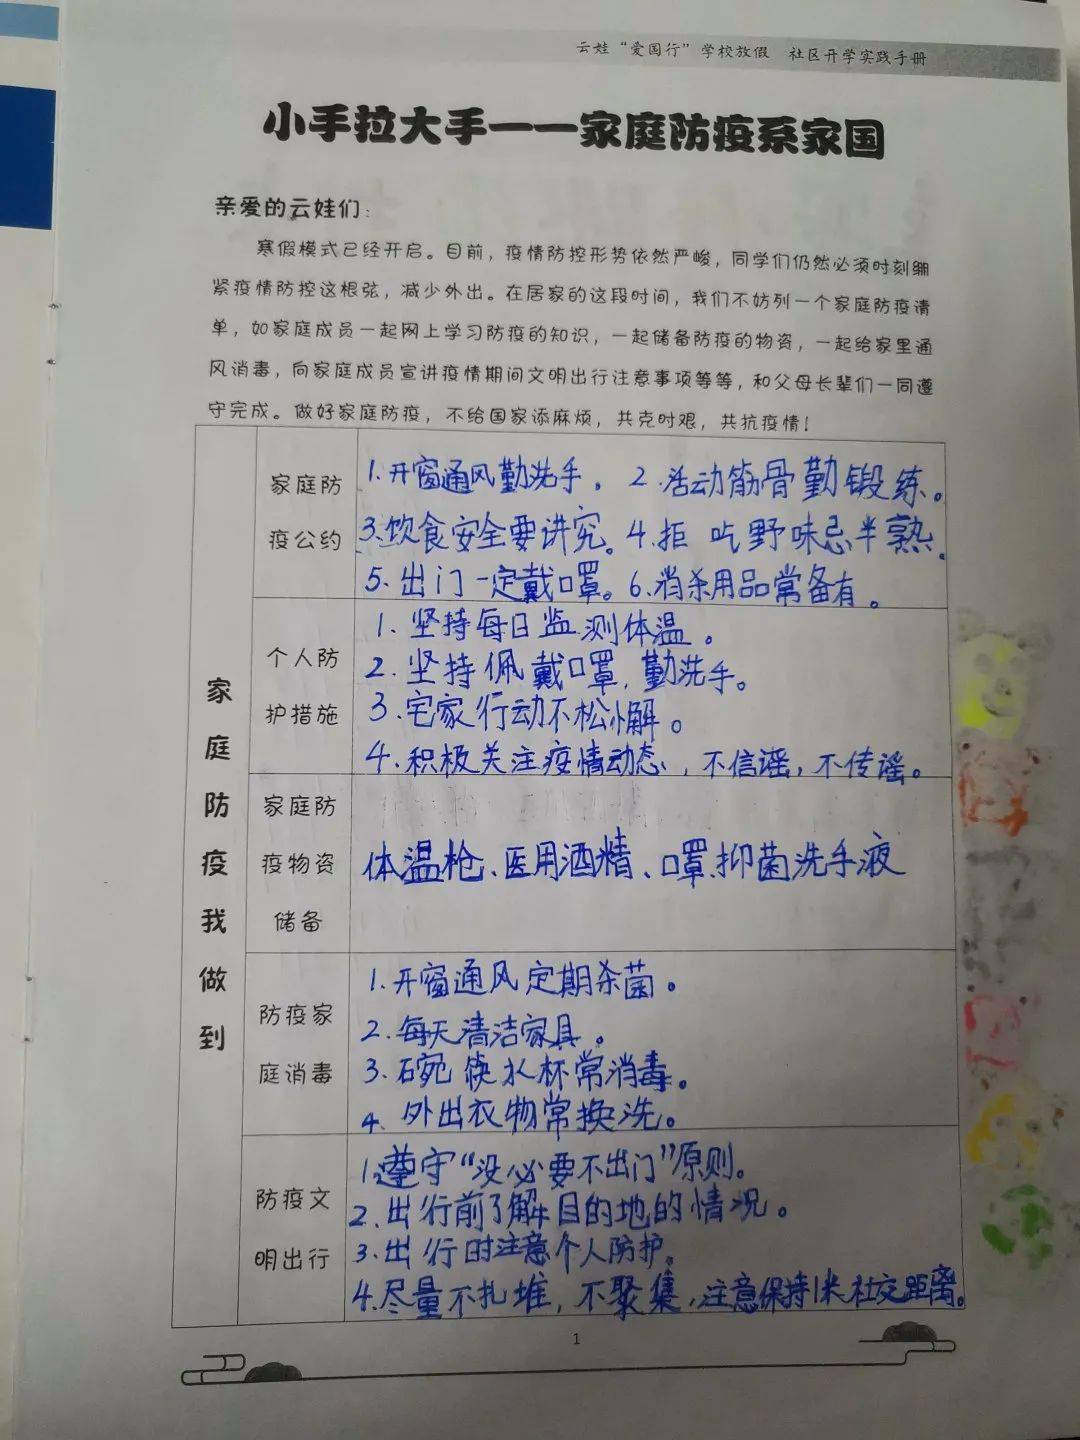 云娃“爱国行”学校放假 社区开学实践手册
小手拉大手——家庭防疫系家国
亲爱的云娃们：
寒假模式已经开启。目前，疫情防控形势依然严峻，同学们仍然必须时刻绷
紧疫情防控这根弦，减少外出。在居家的这段时间，我们不妨列一个家庭防疫清
单，如家庭成员一起网上学习防疫的知识，一起储备防疫的物资，一起给家里通
风消毒，向家庭成员宣讲疫情期间文明出行注意事项等等，和父母长辈们一同遵
守完成。做好家庭防疫，不给国家添麻烦，共克时艰，共抗疫情！
家庭防疫我做到
家庭防
疫公约
1.开窗通风勤洗手。 2.活动筋骨勤锻练。
3.饮食安全要讲究。4.拒吃野味忌半熟.
5.出门一定戴口罩。6.消杀用品常备有。
个人防
护措施
1.坚持每日监测体温。
2.坚持佩戴口罩,勤洗手。
3.宅家行动不松懈。
4.积极关注疫情动态，不信谣，不传谣。
家庭防
疫物资
储备
体温枪、医用酒精、口罩、抑菌洗手液
防疫家
庭消毒
1.开窗通风定期杀菌。
2.每天清洁家具。
3.碗筷水杯常消毒。
4.外出衣物常换洗。
防疫文
明出行
1.遵守“没必要不出门”原则。
2.出行前了解目的地的情况。
3.出行时注意个人防护。
4.尽量不扎堆，不聚集，注意保持1米社交距离。
1